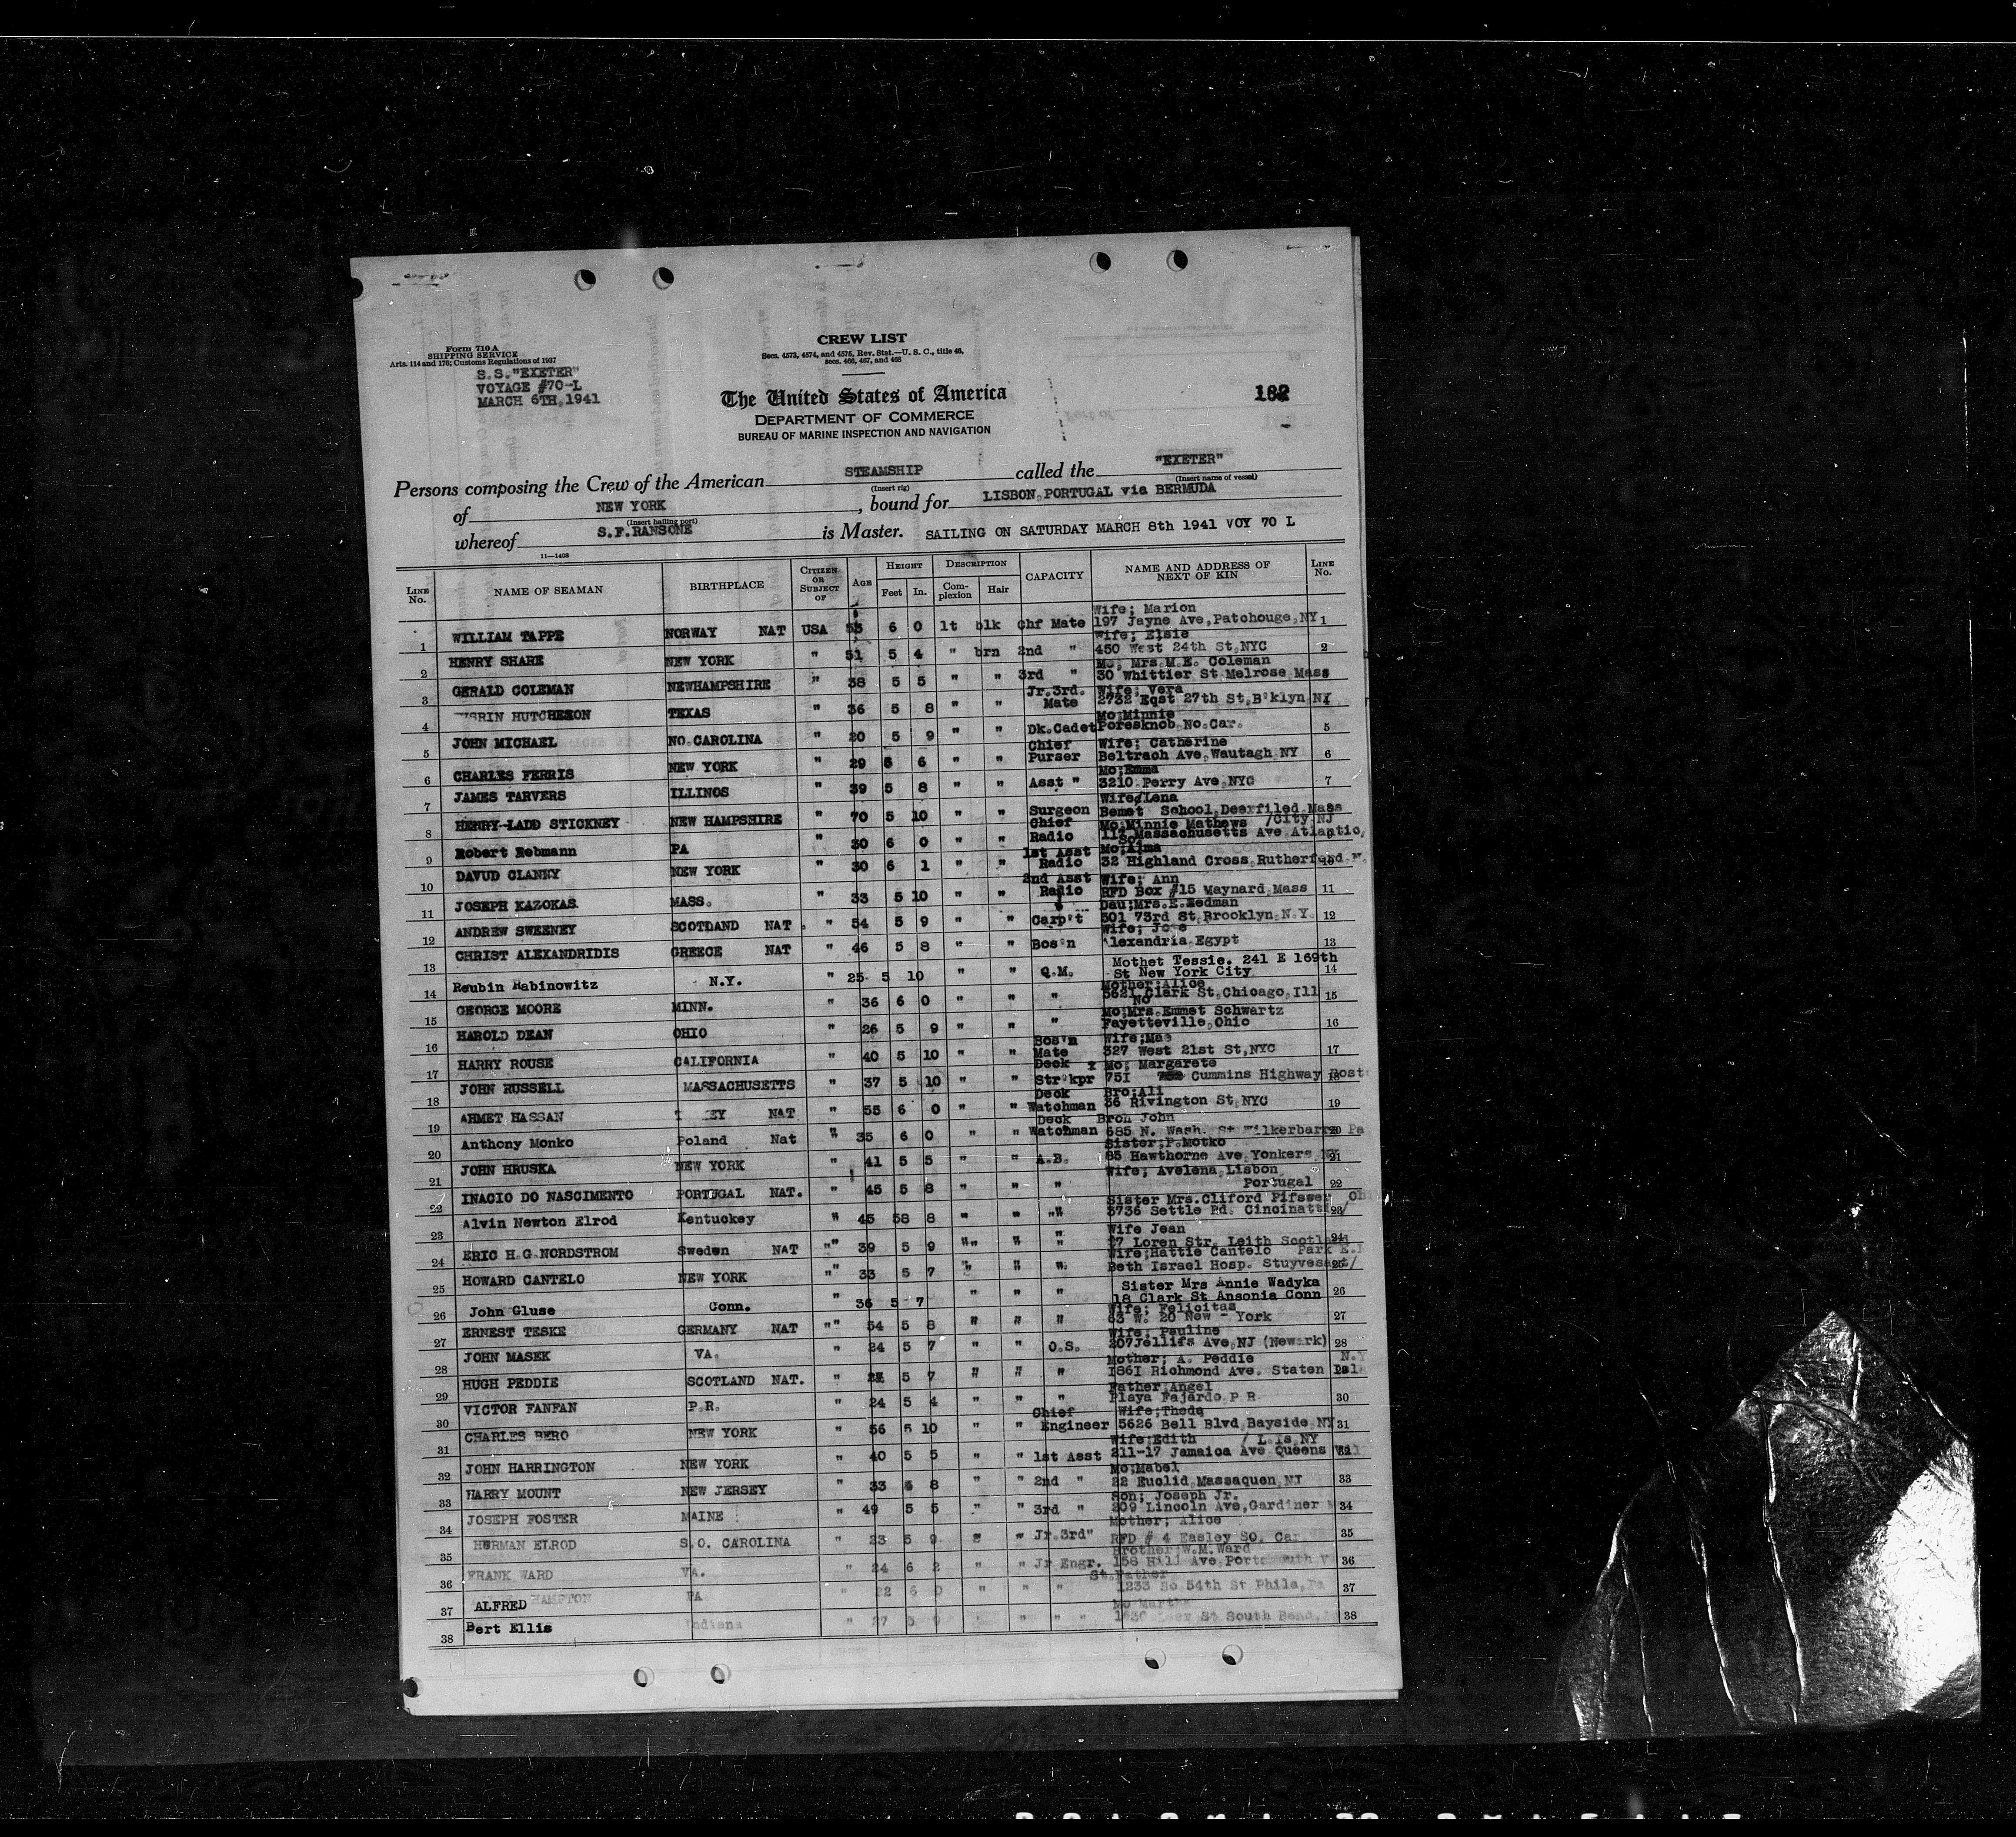 Form 710 A
SHIPPING SERVICE
Arts. 114 and 176; Customs Regulations of 1937
S.S."EXETER"
VOYAGE #70-L
MARCH 6TH,1941
CREW LIST
Secs. 4573, 4574, and 4575, Rev. Stat.—U. S. C., title 46,
secs. 466, 467, and 468
The United States of America
DEPARTMENT OF COMMERCE
BUREAU OF MARINE INSPECTION AND NAVIGATION
162
Persons composing the Crew of the American STEAMSHIP called the "EXETER"
(Insert rig) (Insert name of vessel)
of NEW YORK, bound for LISBON,PORTUGAL via BERMUDA
(Insert hailing port)
whereof S.F.RANSONE is Master. SAILING ON SATURDAY MARCH 8th 1941 VOY 70 L
11—1408
LINE No. NAME OF SEAMAN BIRTHPLACE CITIZEN OR SUBJECT OF AGE HEIGHT Feet In. DESCRIPTION Complexion Hair CAPACITY NAME AND ADDRESS OF NEXT OF KIN LINE No.
Wife; Marion
1 WILLIAM TAPPE NORWAY NAT USA 53 6 0 lt blk Chf Mate 197 Jayne Ave,Patchouge,NY 1
Wife; Elsie
2 HENRY SHARE NEW YORK " 51 5 4 " brn 2nd " 450 West 24th St,NYC 2
Mo; Mrs.M.E. Coleman
3 GERALD COLEMAN NEWHAMPSHIRE " 38 5 5 " " 3rd " 30 Whittier St Melrose Mass
Jr.3rd. Wife; Vera
4 HUTCHESON TEXAS " 36 5 8 " " Mate 2732 Eqst 27th St,B'klyn NY
Mo;Minnie
5 JOHN MICHAEL NO.CAROLINA " 20 5 9 " " Dk.Cadet Poresknob No.Car. 5
Chief Wife; Catherine
6 CHARLES FERRIS NEW YORK " 29 5 6 " " Purser Beltrach Ave,Wautagh NY 6
Mo;Emma
7 JAMES TARVERS ILLINOS " 39 5 8 " " Asst " 3210 Perry Ave,NYC 7
Wife;Lena
8 HENRY LADD STICKNEY NEW HAMPSHIRE " 70 5 10 " " Surgeon Bemet School,Deerfiled Mass
Chief Mo;Minnie Mathews /City NJ
9 Robert Rebmann PA " 30 6 0 " " Radio 112 Massachusetts Ave Atlantic,
1st Asst Mo;Alma
10 DAVUD CLANKY NEW YORK " 30 6 1 " " Radio 32 Highland Cross,Rutherford
2nd Asst Wife; Ann
11 JOSEPH KAZOKAS MASS. " 33 5 10 " " Radio RFD Box #15 Maynard Mass 11
Dau;Mrs.E.Redman
12 ANDREW SWEENEY SCOTDAND NAT. " 54 5 9 " " Carp't 501 73rd St,Brooklyn,N.Y. 12
Wife;
13 CHRIST ALEXANDRIDIS GREECE NAT " 46 5 8 " " Bos'n Alexandria,Egypt 13
Mothet Tessie. 241 E 169th
14 Reubin Rabinowitz N.Y. " 25 5 10 " " Q.M. St New York City 14
Mother;Alice
15 GEORGE MOORE MINN. " 36 6 0 " " " 5621 Clark St,Chicago,Ill 15
No
Mo;Mrs.Emmet Schwartz
16 HAROLD DEAN OHIO " 26 5 9 " " " Fayetteville,Ohio 16
Bos'n Wife;Mae
17 HARRY ROUSE CALIFORNIA " 40 5 10 " " Mate 327 West 21st St,NYC 17
Deck Mo; Margarete
18 JOHN RUSSELL MASSACHUSETTS " 37 5 10 " " Str'kpr 751 Cummins Highway Bost
Deck Bro;Ali
19 AHMET HASSAN NAT " 55 6 0 " " Watchman 36 Rivington St,NYC 19
Deck Broh John
20 Anthony Monko Poland Nat " 35 6 0 " " Watchman 685 N. Wash. St Wilkerbarre Pa
Sister;P.Motko
21 JOHN HRUSKA NEW YORK " 41 5 5 " " A.B. 85 Hawthorne Ave,Yonkers
Wife; Avelena,Lisbon
22 INACIO DO NASCIMENTO PORTUGAL NAT. " 45 5 8 " " " Portugal 22
Sister Mrs.Cliford Pifsser
23 Alvin Newton Elrod Kentuckey " 45 58 8 " " " 3736 Settle Rd. Cincinatti 23
Wife Jean
24 ERIC H.G.NORDSTROM Sweden NAT " 39 5 9 " " " 27 Loren Str. Leith Scotland
Wife;Hattie Cantelo Park E.
25 HOWARD CANTELO NEW YORK " 33 5 7 " " " Beth Israel Hosp. Stuyvesant/
Sister Mrs Annie Wadyka
26 John Gluse Conn. " 36 5 7 " " " 18 Clark St Ansonia Conn 26
Wife; Felicitas
27 ERNEST TESKE GERMANY NAT " 54 5 8 " " " 63 W. 20 New - York 27
Wife; Pauline
28 JOHN MASEK VA. " 24 5 7 " " O.S. 207Jellifs Ave,NJ (Newark) 28
Mother; A. Peddie N.Y
29 HUGH PEDDIE SCOTLAND NAT. " 5 7 " " " 1861 Richmond Ave. Staten
Father;Angel
30 VICTOR FANFAN P.R. " 24 5 4 " " " Playa Fajardo P R 30
Chief Wife;Theda
31 CHARLES BERO NEW YORK " 56 5 10 " " Engineer 5626 Bell Blvd,Bayside,NY 31
Wife;Edith / L.Is,NY
32 JOHN HARRINGTON NEW YORK " 40 5 5 " " 1st Asst 211-17 Jamaica Ave Queens
Mo;Mabel
33 HARRY MOUNT NEW JERSEY " 33 5 8 " " 2nd " 22 Euclid,Massaquen,NJ 33
Son; Joseph Jr.
34 JOSEPH FOSTER MAINE " 49 5 5 " " 3rd " 209 Lincoln Ave,Gardiner 34
Mother; Alice
35 HURMAN ELROD S.O. CAROLINA " 23 5 9 " " Jr.3rd" RFD # 4 Easley SO. Car 35
Brother;W.M.Ward
36 FRANK WARD VA. " 24 6 2 " " Jr Engr. 158 Hill Ave,Portsmouth V 36
St.Father
37 ALFRED HAMPTON PA " 22 6 0 " " " 1233 So 54th St Phila, 37
Mo Martha
38 Bert Ellis Indiana " 27 5 9 " " " " St South Bend, 38